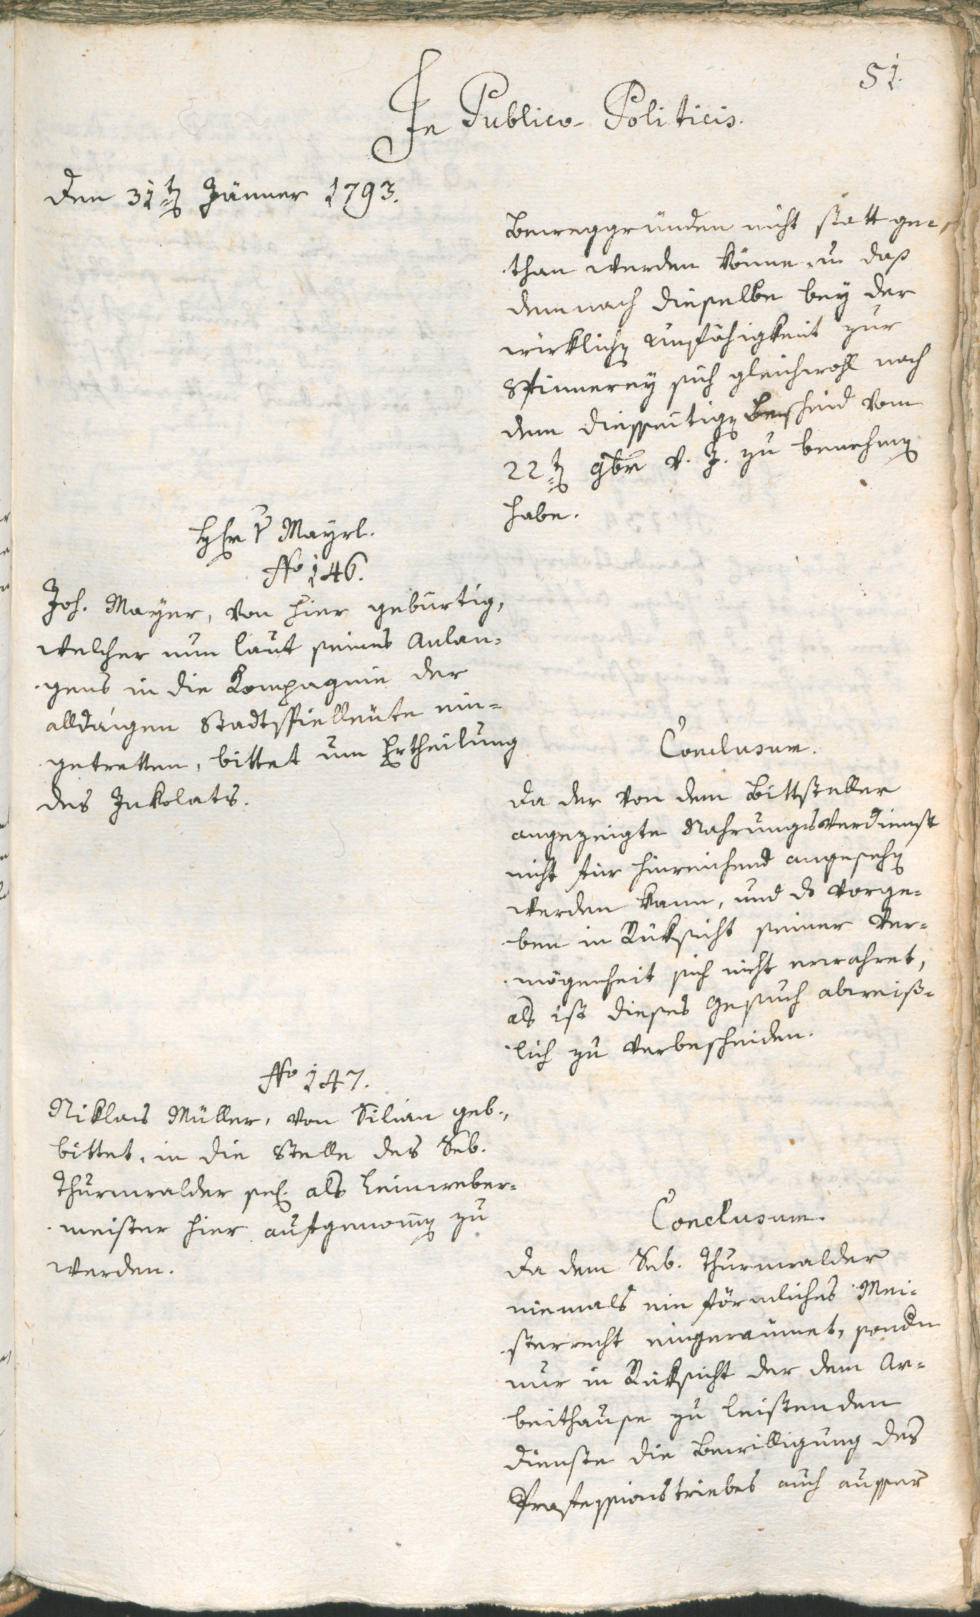 51.
In Publico-Politicis.
Den 31t Jänner 1793.
Beweggründen nicht statt ge-
than werden könne, u daß
demnach dieselbe bey der
wirklichen Unfähigkeit zur
Spinnerey sich gleichwohl nach
dem diesseitigen Bescheid vom
22t 9br v. J. zu benehmen
habe.
Mayrl.
No 146.
Joh. Mayer, von hier gebürtig,
welcher nun laut seines Anlan-
gens in die Kompagnie der
alldaigen Stadtspielleute ein-
getretten, bittet um Ertheilung
des Inkolats.
Conclusum.
Da der von dem Bittsteller
angezeigte Nahrungsverdienst
nicht für hinreichend angesehen
werden kann, und ds Vorge-
ben in Rüksicht seiner Ver-
mögenheit sich nicht erwahret,
als ist dieses Gesuch abweiß-
lich zu verbescheiden.
No 147.
Niklaus Müller, von Silian geb.,
bittet, in die Stelle des Seb.
Thurnwalder sel. als Leinweber-
meister hier aufgenommen zu
werden.
Conclusum.
Da dem Seb. Thurnwalder
niemals ein förmliches Mei-
sterrecht eingeraumet, sondn
nur in Rüksicht der dem Ar-
beithause zu leistenden
Dienste die Bewilligung des
Professionstriebes auch ausser